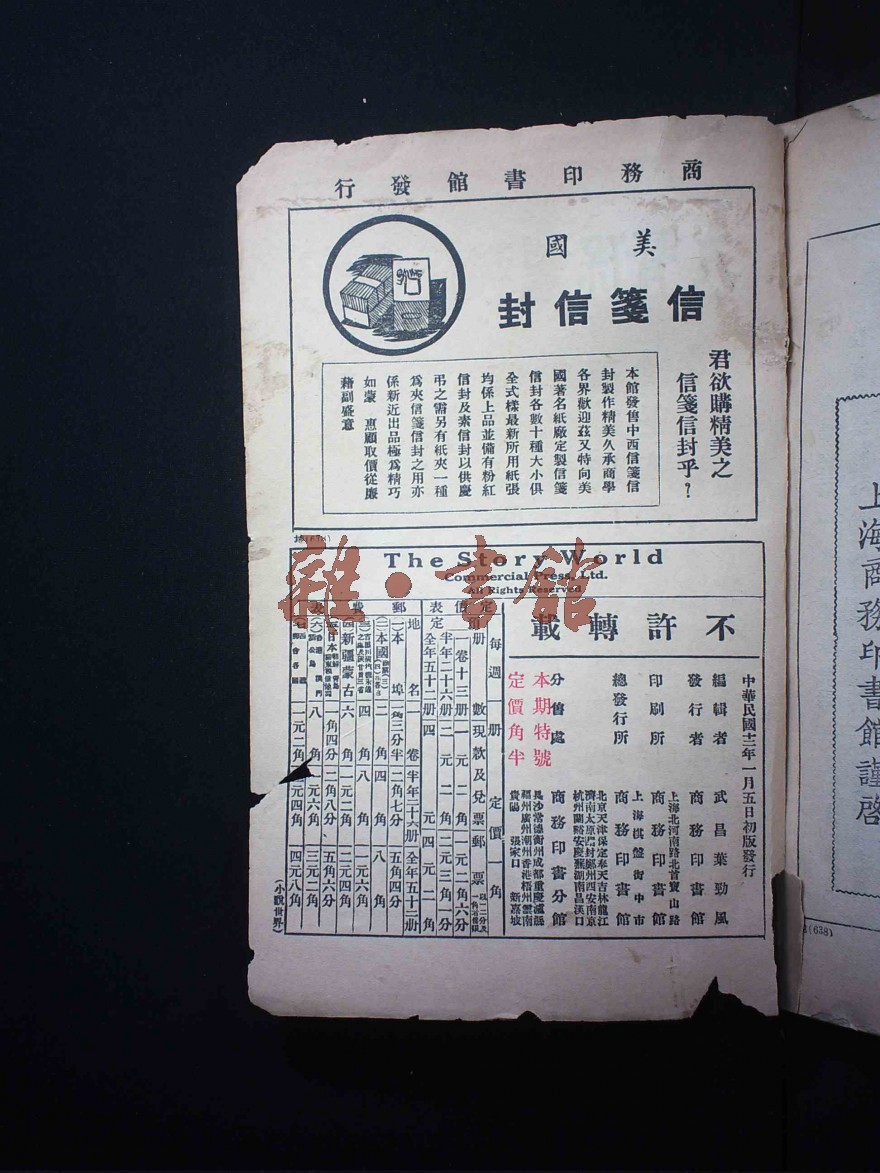 商務印書館發行
美國
信箋信封
君欲購精美之
信箋信封乎？
本館發售中西信箋信
封製作精美久承商學
各界歡迎茲又特向美
國著名紙廠定製信箋
信封各數十種大小俱
全式樣最新所用紙張
均係上品並備有粉紅
信封及素信封以供慶
弔之需另有紙夾一種
爲夾信箋信封之用亦
係新近出品極爲精巧
如蒙　惠顧取價從廉
藉副盛意
The Story World
Commercial Press, Ltd.
All Rights Reserved
不許轉載
中華民國十二年一月五日初版發行
編輯者　武昌葉勁風
發行者　商務印書館
上海北河南路北首寶山路
印刷所　商務印書館
上海棋盤街中市
總發行所　商務印書館
北京天津保定奉天吉林龍江
濟南太原開封鄭州西安南京
杭州蘭谿安慶蕪湖南昌漢口
分售處　商務印書分館
長沙常德衡州成都重慶瀘縣
福州廣州潮州香港梧州雲南
貴陽　張家口　新嘉坡
本期特號
定價角半
定價表
每週一册　定價一角
册數　現款及兌票　郵票
一卷十三册　一元二角　一元二角六分
半年二十六册　二元二角　二元三角一分
全年五十二册　四元　四元二角
郵費表
地名　一卷　半年二十六册　全年五十二册
本埠　一角三分半　二角七分　五角四分
本國　二角　四角　八角
四角　八角　一元六角
新疆蒙古　六角　一元二角　二元四角
日本　一角四分　二角八分　五角六分
香港　澳門　八角　一元六角　三元二角
一元二角　二元四角　四元八角
(小說世界)
雜·書館
上海商務印書館謹啓
(638)